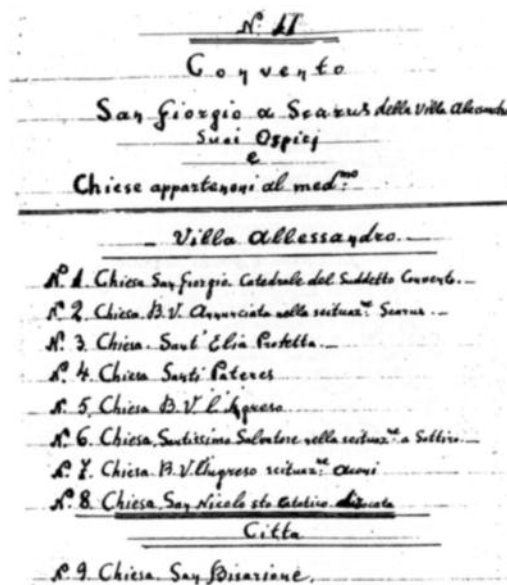 N. II
Convento
San Giorgio a Scarus della Villa Alesandro
Suoi Ospizj
e
Chiese appartenoni al med.mo
Villa Allessandro
N.o 1. Chiesa San Giorgio Catedrale del Suddetto Convento.
N.o 2. Chiesa B.V. Annunciata nella scituaz.ne Scarus
N. 3. Chiesa Sant' Elia Profetta
N.o 4 Chiesa Santi Pateres
N. 5 Chiesa B.V.
N.o 6. Chiesa Santissimo Salvatore nella scituaz.ne a Sottiro
N.o 7. Chiesa B.V. scituaz.ne
N.o 8. Chiesa San Nicolo sto
Citta
N.o 9. Chiesa San Bisarione.